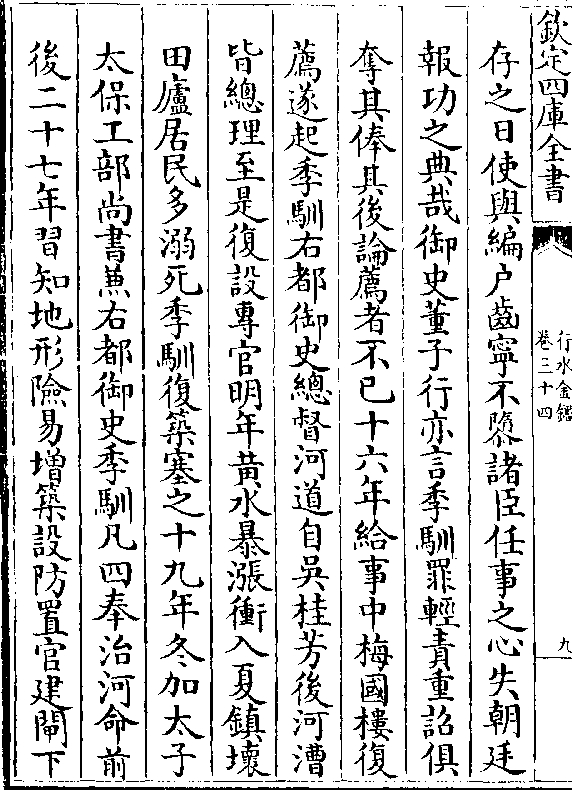 欽定四庫全書
行水金鑑
卷三十四
九
存之日使與編户齒寧不隳諸臣任事之心失朝廷
報功之典哉御史董子行亦言季馴罪輕責重詔俱
奪其俸其後論薦者不已十六年給事中梅國樓復
薦遂起季馴右都御史總督河道自吳桂芳後河漕
皆總理至是復設專官明年黄水暴漲衝入夏鎮壞
田廬居民多溺死季馴復築塞之十九年冬加太子
太保工部尚書兼右都御史季馴凡四奉治河命前
後二十七年習知地形險易增築設防置官建閘下